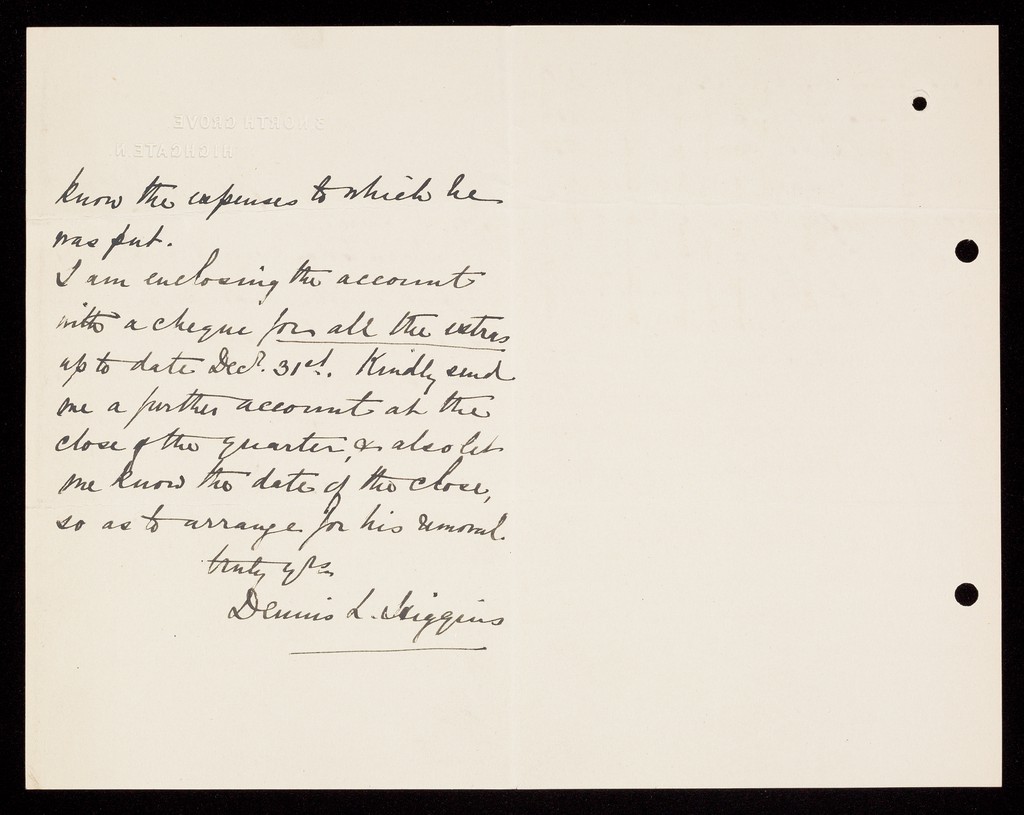 3, NORTH GROVE,
HIGHGATE. N.
know the expenses to which he
was put.
I am enclosing the account
with a cheque for all the extras
up to date Decr. 31st. Kindly send
me a further account at the
close of the quarter, & also let
me know the date of the close,
so as to arrange for his removal.
truly yrs
Dennis L. Higgins